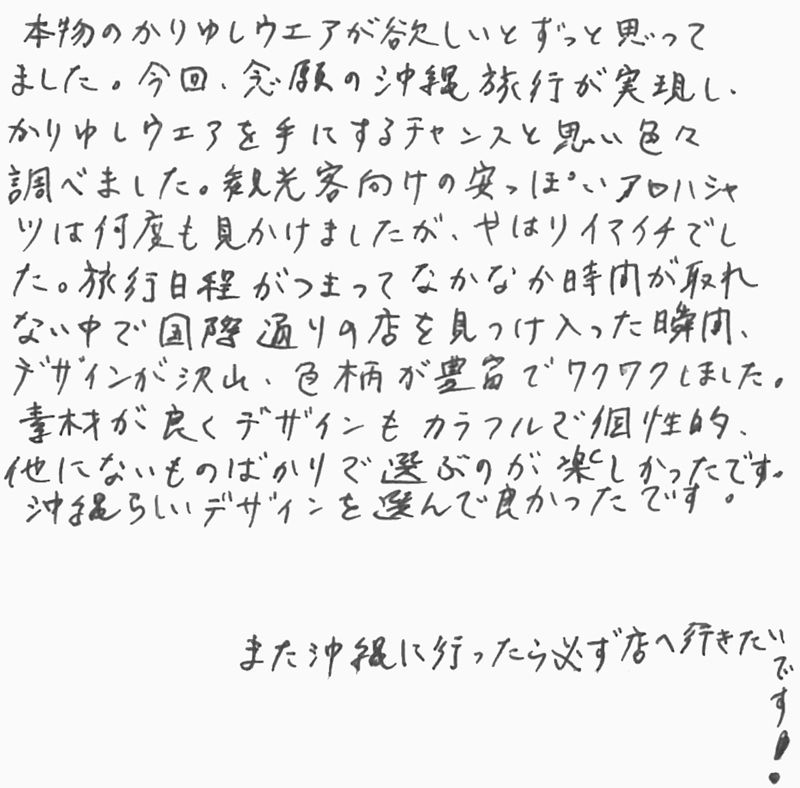 本物のかりゆしウエアが欲しいとずっと思って
ました。今回、念願の沖縄旅行が実現し、
かりゆしウエアを手にするチャンスと思い色々
調べました。観光客向けの安っぽいアロハシャ
ツは何度も見かけましたが、やはりイマイチでし
た。旅行日程がつまってなかなか時間が取れ
ない中で国際通りの店を見つけ入った瞬間、
デザインが沢山、色柄が豊富でワクワクしました。
素材が良くデザインもカラフルで個性的、
他にないものばかりで選ぶのが楽しかったです。
沖縄らしいデザインを選んで良かったです。
また沖縄に行ったら必ず店へ行きたいです!